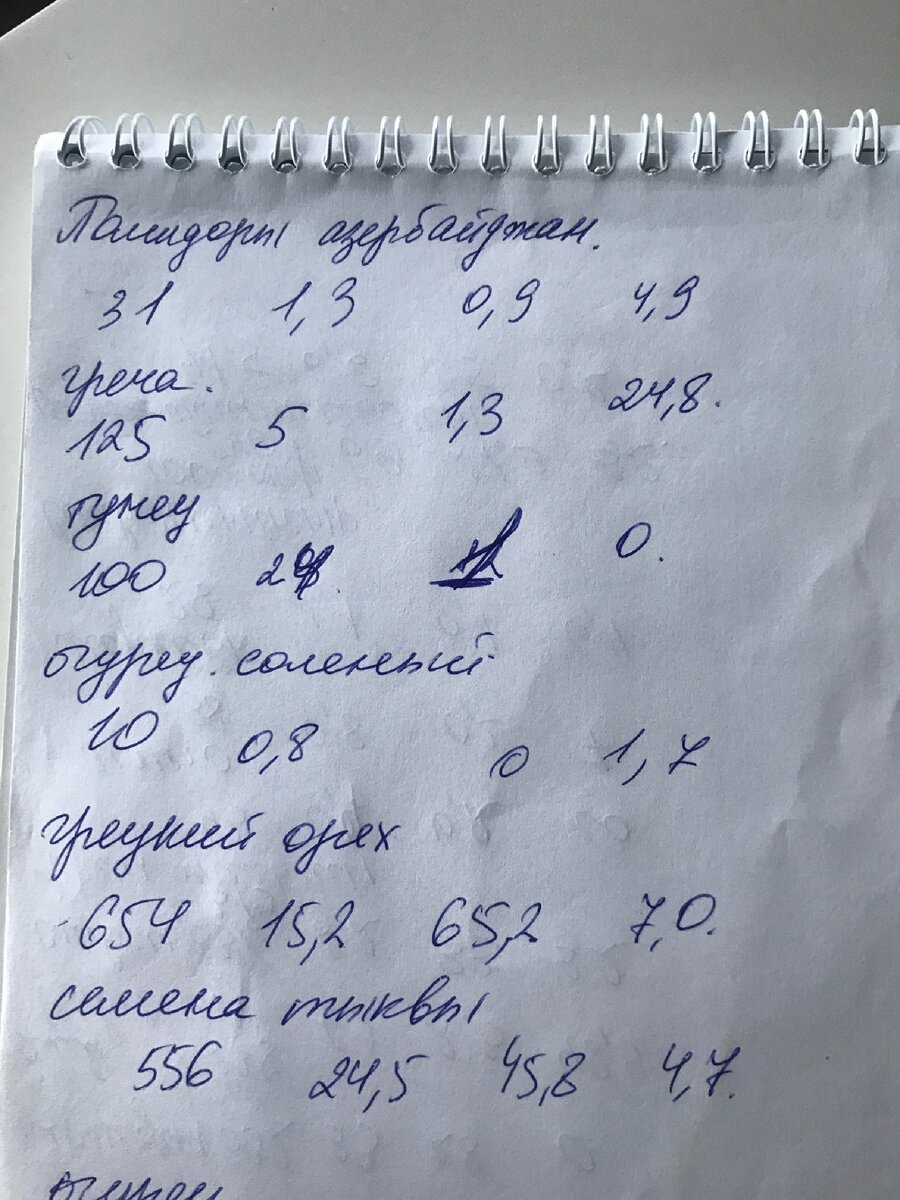 Помидоры азербайджан.
31 1,3 0,9 4,9
греча.
125 5 1,3 24,8.
тунец
100 0.
огурец. соленый
10 0,8 0 1,7
грецкий орех
654 15,2 65,2 7,0.
семена тыквы
556 24,5 45,8 4,7.